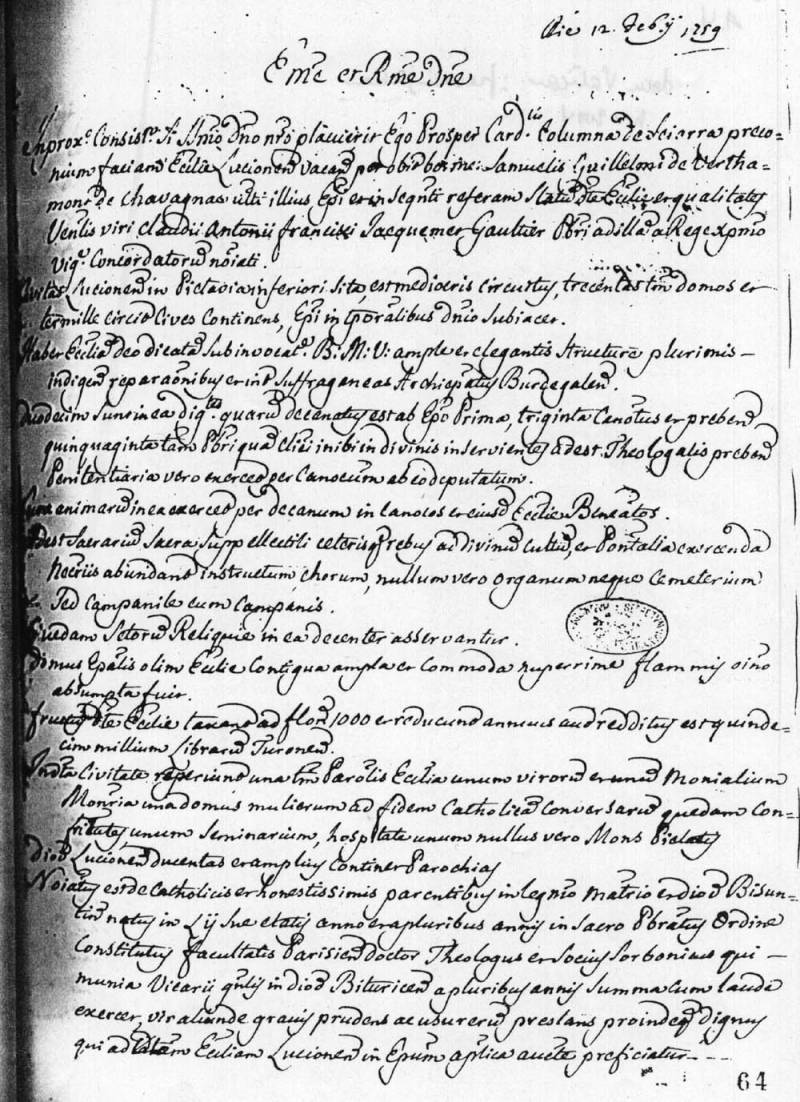 Die 12. Feb.ij 1759
Eme et Rme Dne
In prox.o Consist.o Si Ssmo Dno nro placuerit Ego Prosper Card.lis Columna de Sciarra preco-
nium faciam Eccliæ Lucionen vacan per obit bo: me: Samuelis Guillelmi de Vertha-
mont de Chavagnas ulti illius Epi et in seqnti referam Statu dte Eccliæ et qualitates
Venlis viri Claudii Antonii Francisci Jacquemet Gaultier Pbri ad illa a Rege Xpmo
vig.e Concordatoru noiati.
Civitas Lucionen in Pictavia inferiori sita, est mediocris circuitus, trecentas tm domos et
ter mille circit Cives continens, Epi in tporalibus dnio subiacet.
Habet Eccliā deo dicatā sub invocat.e B: M: V: ample et elegantis structure plurimis -
indigen reparaonibus et int suffraganeas Archiepatus Burdegalen.
Duodecim sunt in ea dig.tes quarū decanatus est ab Epo prima, triginta Canotus et preben,
quinquaginta tam Pbri qua Clici inibi in divinis inservientes adest Theologalis preben
Penitentiaria vero exercet per Canocum ab eo deputatum.
Cura animarū in ea exercet per decanum in Canocos et eiusd Eccliæ Benéatos.
Adest Sacrariū Sacra Suppellectili ceterisq rebus ad divinū cultū, et Pontalia exercenda
necriis abundanr instructum, chorum, nullum vero organum neque Cemeterium
Sed Campanile cum Campanis.
Quedam Sctorū Reliquie in ea decenter asservantur.
Domus Epalis olim Eccliæ contigua ampla et commoda nuperrime flammis oino
absumpta fuit.
Fructus dte Eccliæ taxant ad flor 1000 et reducunt annuus aut redditus est quinde-
cim millium librarū Turonen.
In dta Civitate reperiunt una tm Parolis Ecclia unum virorū et unū Monialium
Monria una domus mulierum ad fidem Catholicā conversarū quedam Con-
frtitates, unum Seminarium, hospitale unum nullus vero Mons Pietatis
Dioc Lucionen ducentas et amplius continet Parochias
Noiatus est de Catholicis et honestissimis parentibus in legmo matrio et dioc Bisun-
tin natus in Lij sue etatis anno et a pluribus annis in Sacro Pbratus Ordine
Constitutus facultatis Parisien doctor Theologus et Socius Sorbonius qui -
munia Vicarii gnlis in dioc Bituricen a pluribus annis summa cum laude
exercet, vir aliunde gravis prudens ac usu rerū prestans proindeq dignus
qui ad dtam Eccliam Lucionen in Epum aplica aucte preficiatur - - -
64